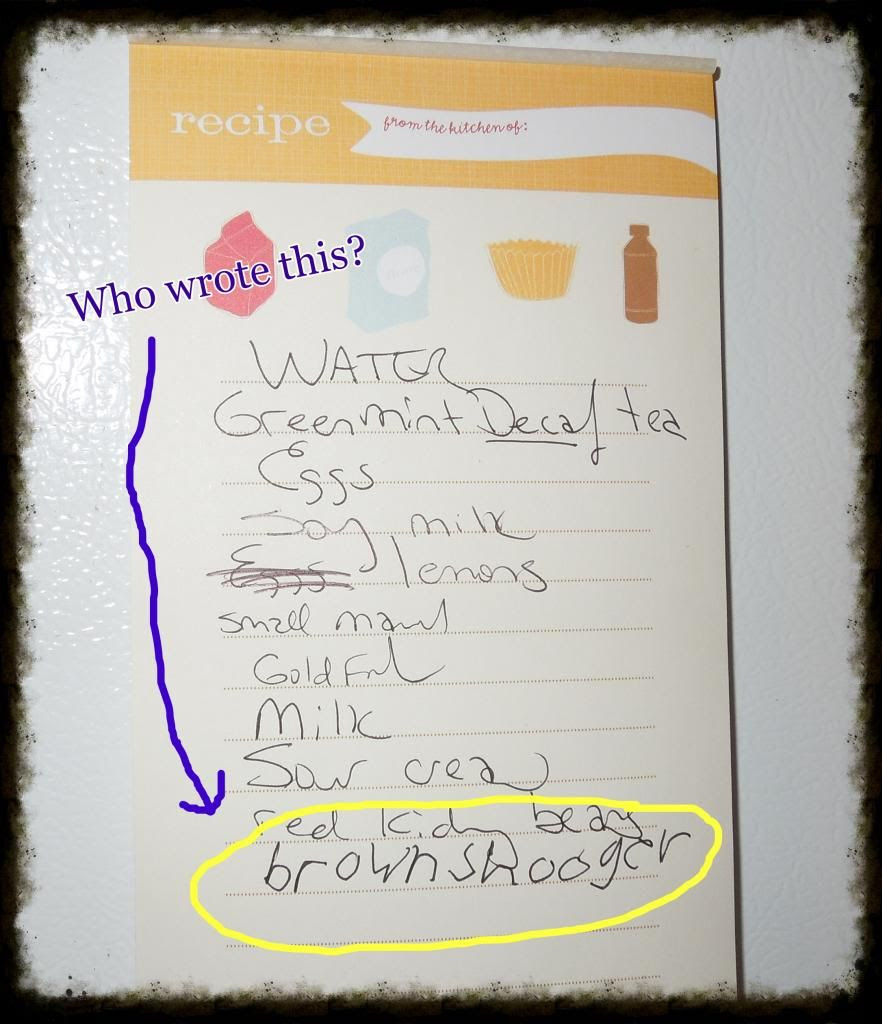 recipe
from the kitchen of:
flour
Who wrote this?
WATER
Greenmint Decaf tea
Eggs
Soy milk
Eggs lemons
small
Gold
Milk
Sour cream
red kidny beans
brown shooger